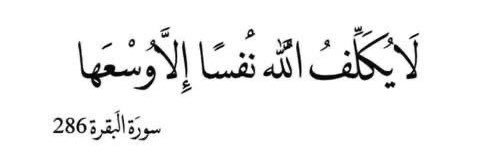 لَا يُكَلِّفُ اللّٰه نُفسًا إِلَّا وُسْعَها
سورَة البَقرة 286